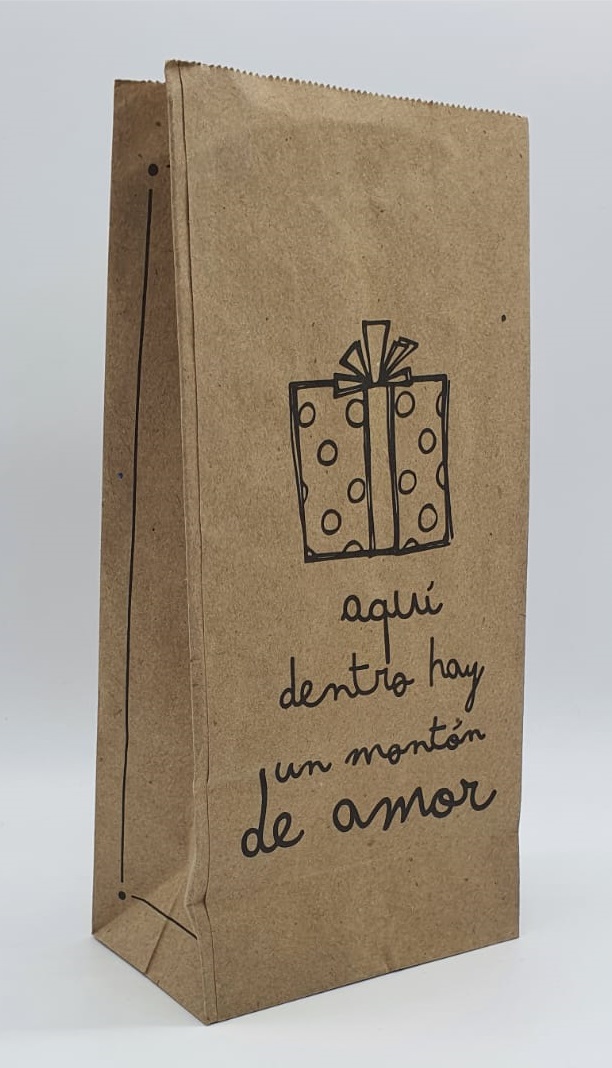 aquí
dentro hay
un montón
de amor